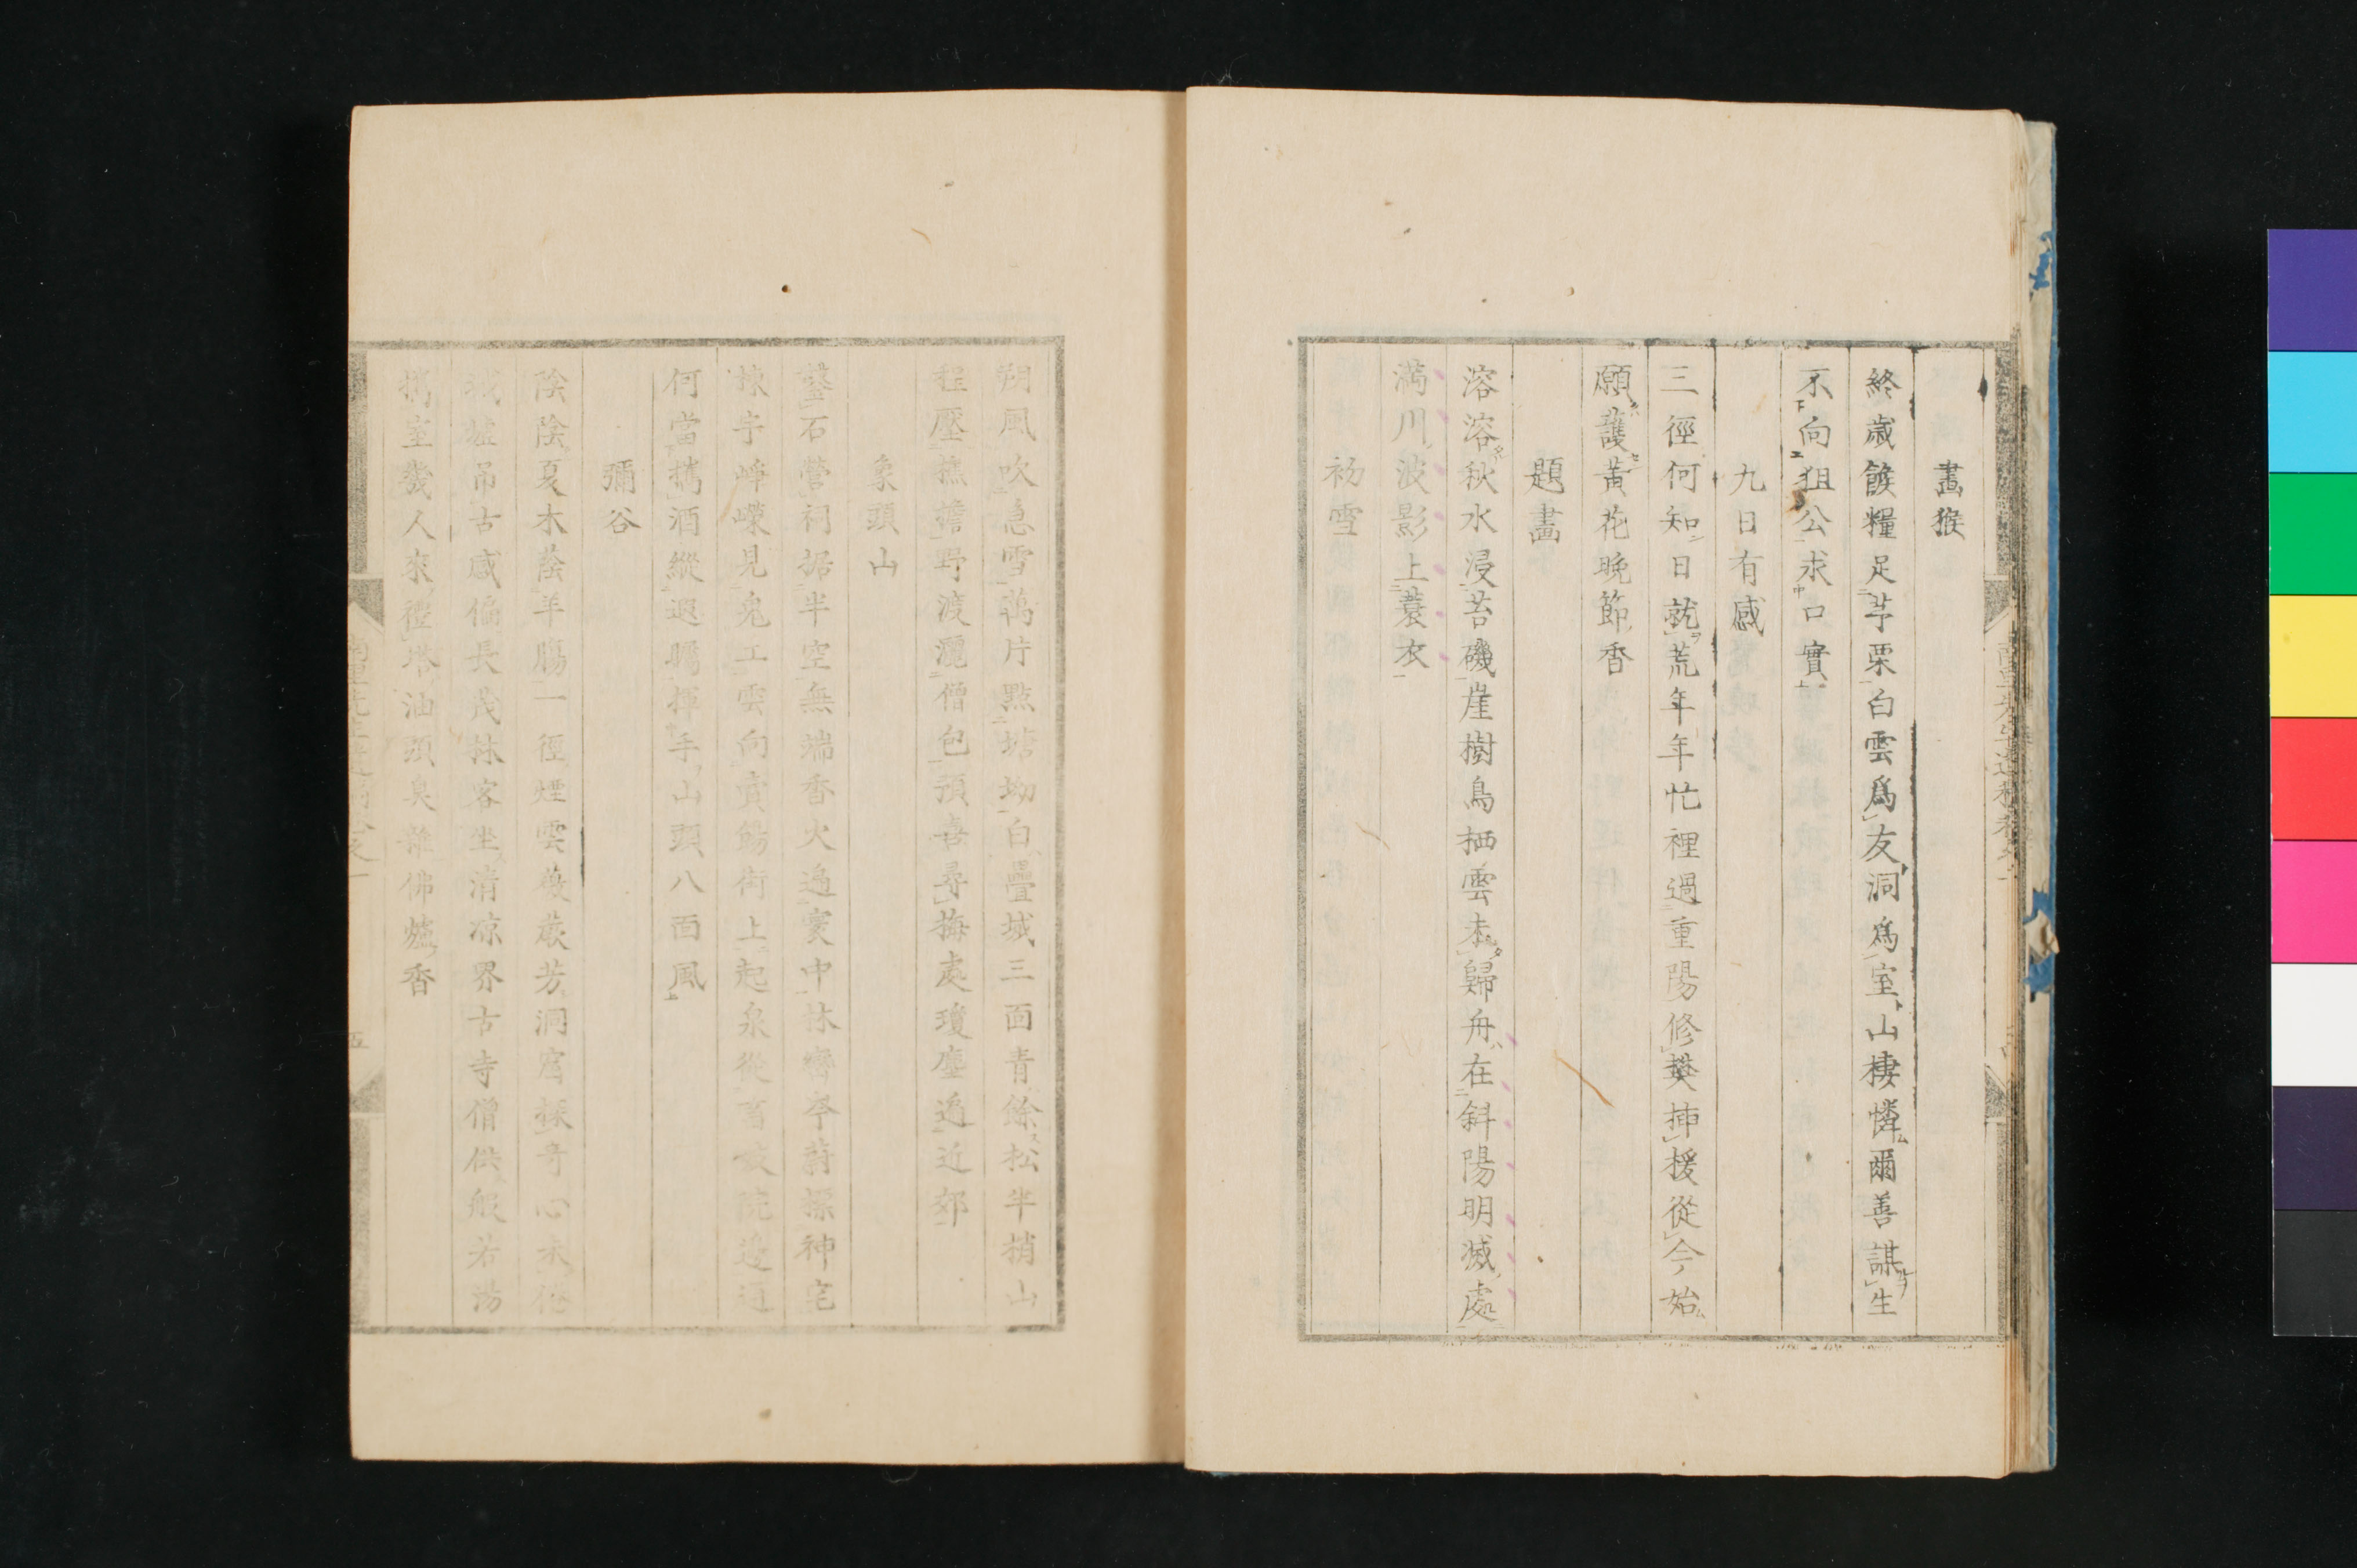 畫猴
終歲餱糧足芧栗白雲爲友洞爲室山棲憐爾善謀生
不向狙公求口實
九日有感
三徑何知日就荒年年忙裡過重陽修樊揷援從今始
願護黃花晩節香
題畫
溶溶秋水浸苔磯崖樹鳥栖雲未歸舟在斜陽明滅處
滿川波影上蓑衣
初雪
朔風吹急雪萬片點塘坳白疊城三面青餘松半梢山
程壓樵擔野渡灑僧包預喜尋梅處瓊塵遍近郊
象頭山
鑿石營祠据半空無端香火遍寰中林巒岑蔚探神宅
棟宇崢嶸見鬼工雲向賣餳街上起泉從院邊通
何當攜酒縱遐矚揮手山頭八面風
彌谷
陰陰夏木蔭羊腸一徑煙雲蔌蔌芳洞窟探奇心未倦
城墟吊古感偏長茂林客坐清凉界古寺僧供般若湯
擕室幾人來禮塔油頭臭雜佛爐香
五